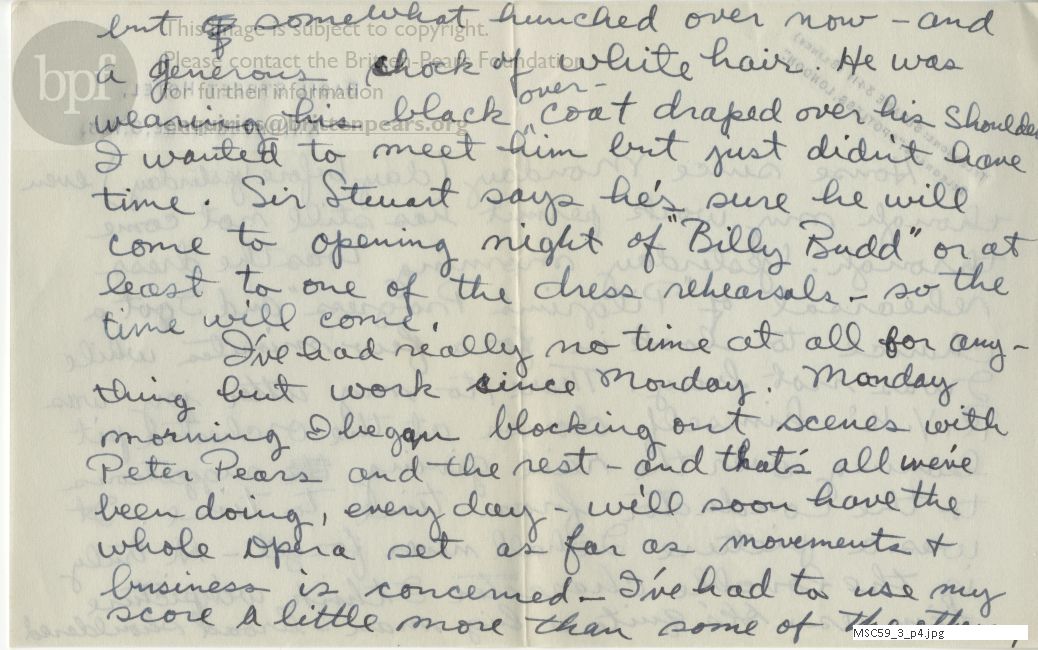 but somewhat hunched over now – and
This image is subject to copyright.
Please contact the Britten-Pears Foundation
a generous shock of white hair. He was
bpf
for further information
over-
wearing his black coat draped over his shoulder
enquiries@brittenpears.org
I wanted to meet him but just didn't have
time. Sir Steuart says he's sure he will
come to opening night of "Billy Budd" or at
least to one of the dress rehearsals – so the
time will come.
I've had really no time at all for any-
thing but work since Monday. Monday
morning I began blocking out scenes with
Peter Pears and the rest – and that's all we've
been doing, every day – we'll soon have the
whole opera set as far as movements +
business is concerned. I've had to use my
score a little more than some of the
MSC59_3_p4.jpg